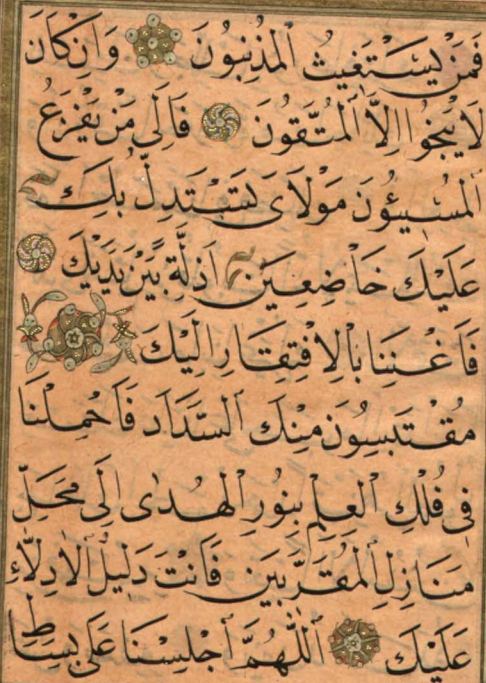 فَمَنْ يَسْتَغِيثُ الْمُذْنِبُونَ وَاِنْ كَانَ
لَا يَنْجُوا اِلَّا الْمُتَّقُونَ فَاِلَى مَنْ يَفْزَعُ
الْمُسِيْئُونَ مَوْلَاىَ بِكَ
عَلَيْكَ خَاضِعِينَ اَذِلَّةً بَيْنَ يَدَيْكَ
فَاَغْنِنَا بِالْاِفْتِقَارِ اِلَيْكَ
مُقْتَبِسُونَ مِنْكَ السَّدَاد فَاَحْمِلْنَا
فِى فُلْكِ الْعِلْمِ بِنُورِ الْهُدٰى اِلَى مَحَلِّ
مَنَازِلِ الْمُقَرَّبِينَ فَاَنْتَ دَلِيلُ الْاَدِلَّاءِ
عَلَيْكَ اَللّٰهُمَّ اَجْلِسْنَا عَلَى بِسَاطِ